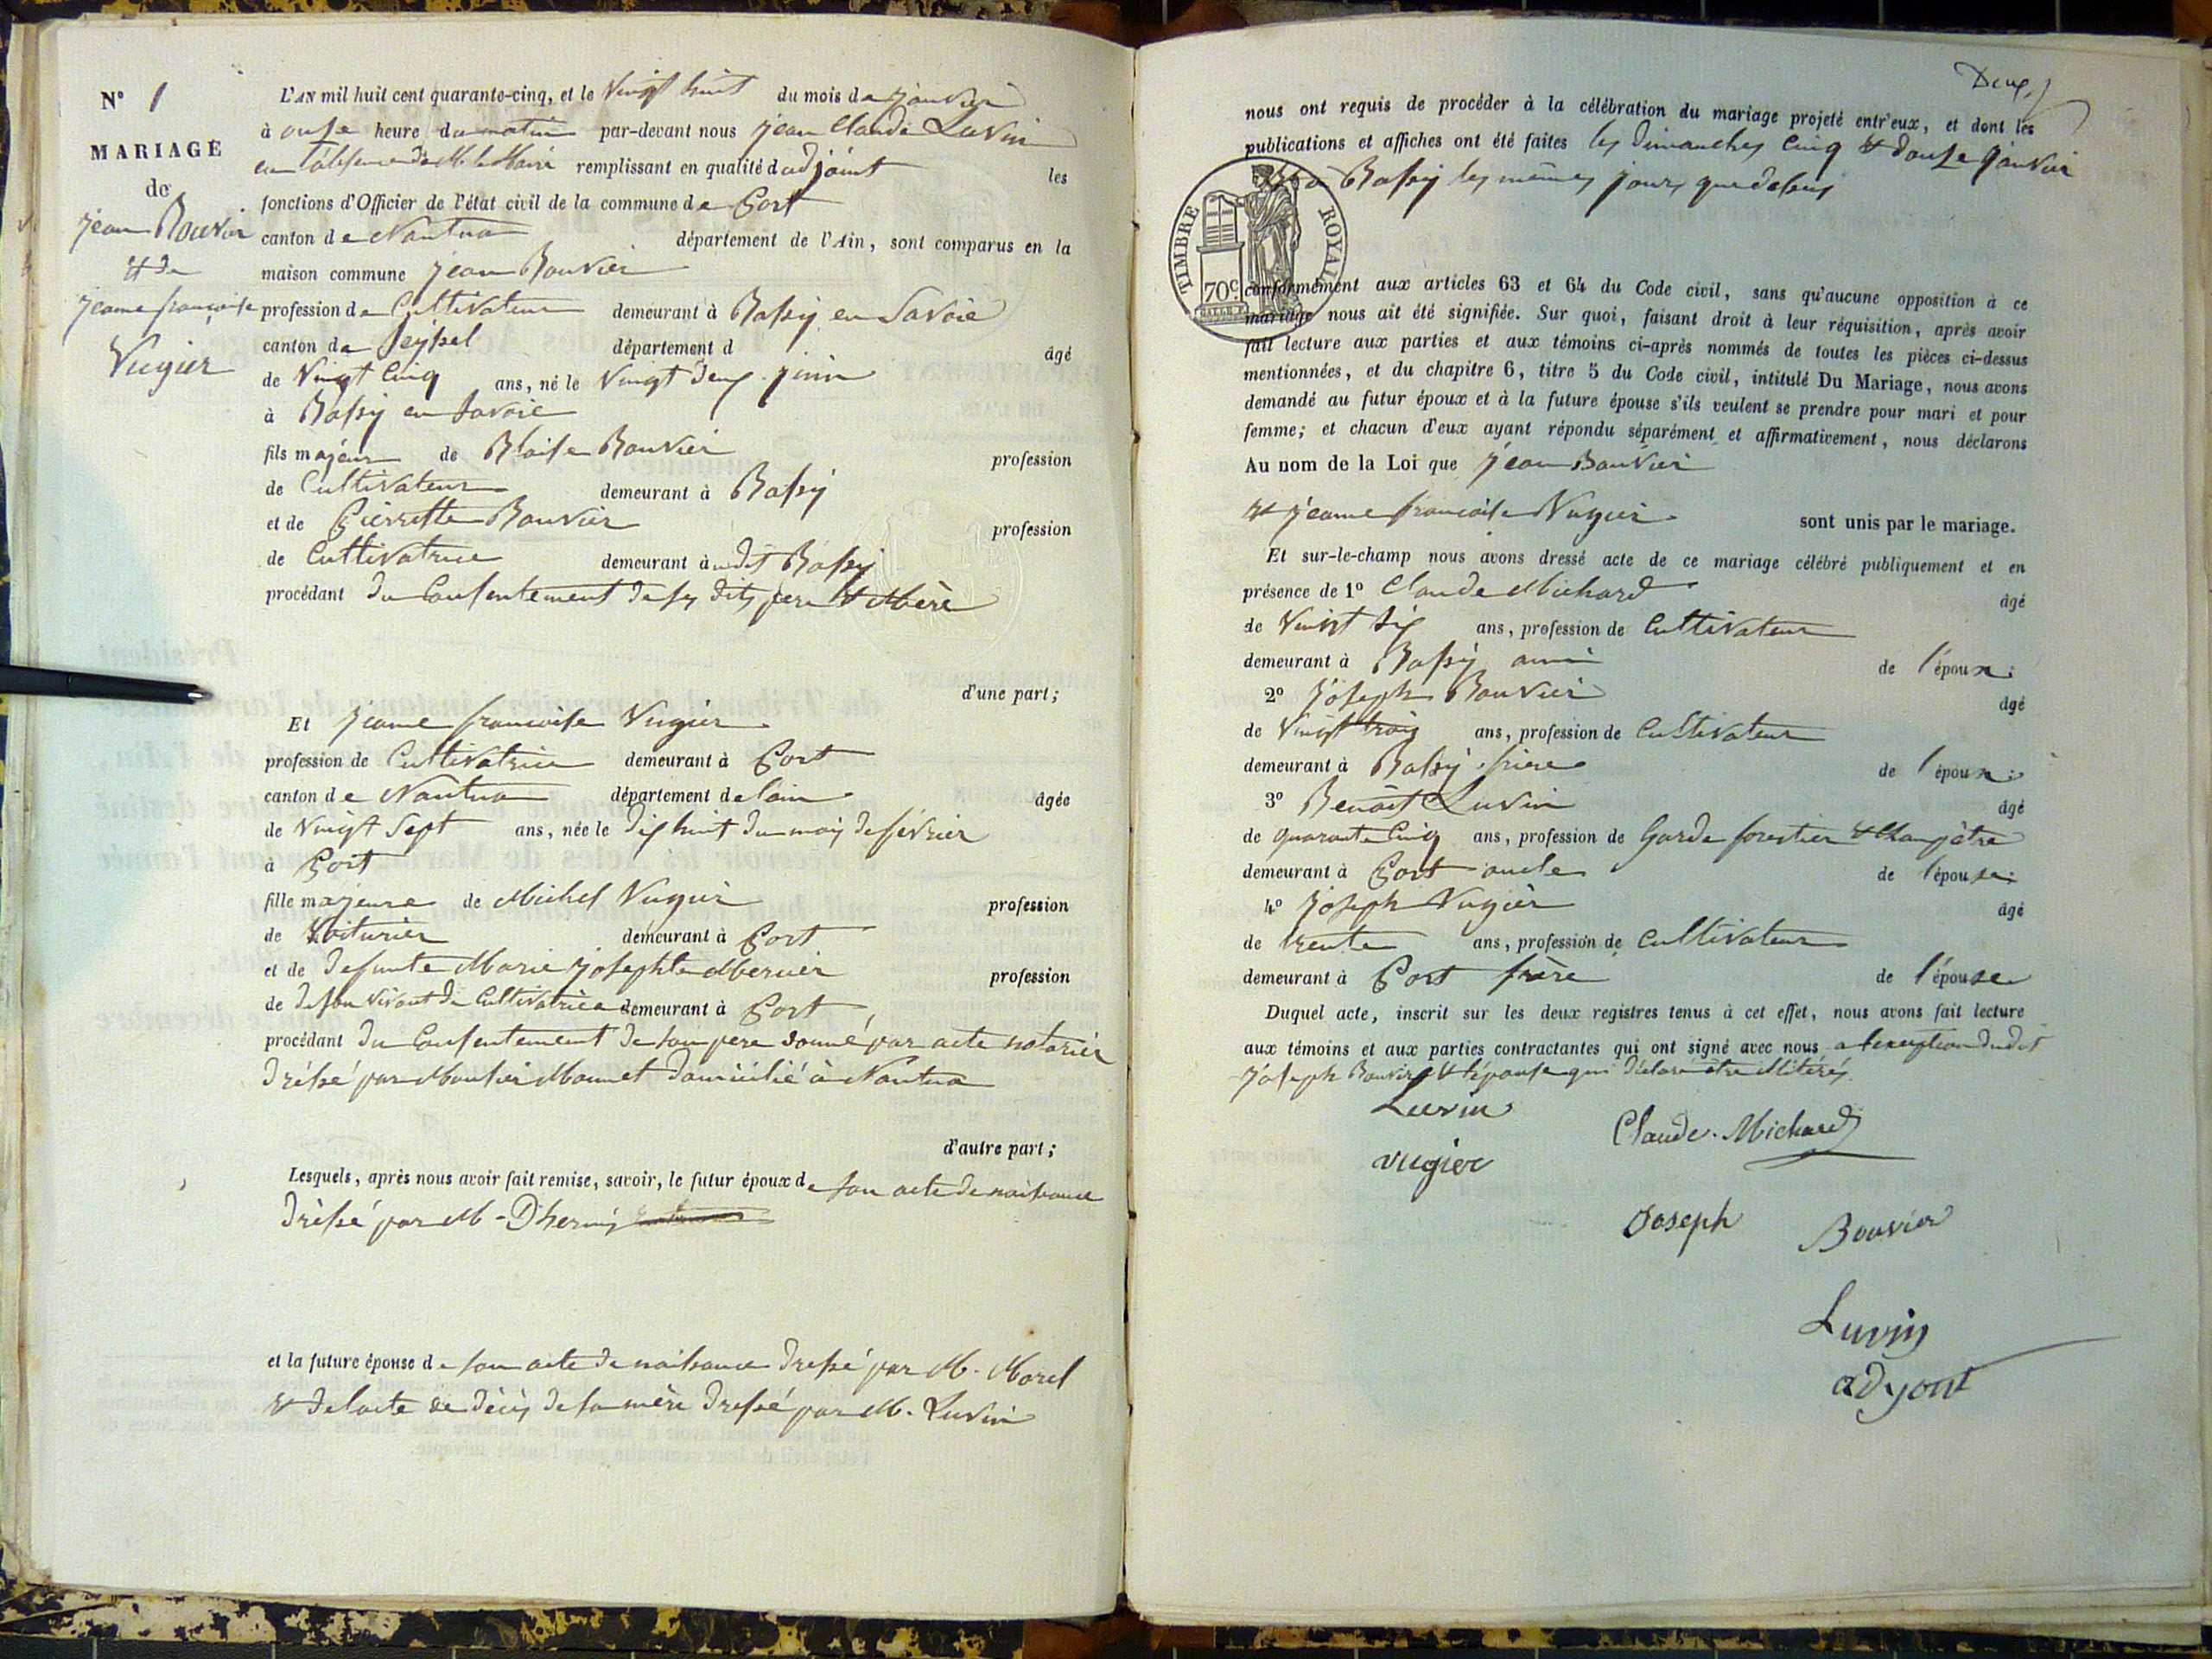 N° 1
MARIAGE
de
Jean Bouvier
et de
Jeanne françoise
Vugier
L'AN mil huit cent quarante-cinq, et le Vingt huit du mois de Janvier
à onse heure du matin par-devant nous Jean Claude Luvin
en l'absence de M. le Maire remplissant en qualité d'adjoint les
fonctions d'Officier de l'état civil de la commune de Port
canton de Nantua département de l'Ain, sont comparus en la
maison commune Jean Bouvier
profession de Cultivateur demeurant à Bassy en Savoie
canton de Seyssel département d âgé
de Vingt Cinq ans, né le Vingt deux juin
à Bassy en Savoie
fils majeur de Blaise Bouvier profession
de Cultivateur demeurant à Bassy
et de Pierrette Bouvier profession
de Cultivatrice demeurant à udit Bassy
procédant du Consentement de ses dits père & Mère
d'une part;
Et Jeanne françoise Vugier
profession de Cultivatrice demeurant à Port
canton de Nantua département de lain âgée
de Vingt Sept ans, née le dix huit du mois de février
à Port
fille majeure de Michel Vugier profession
de Voiturier demeurant à Port
et de defunte Marie Josephte Mercier profession
de de son vivant de Cultivatrice demeurant à Port
procédant du Consentement de son père donné par acte notarier
dréssé par Monsier Monnet domicilié à Nantua
d'autre part;
Lesquels, après nous avoir fait remise, savoir, le futur époux de son acte de naissance
dréssé par M - Dhermy
et la future épouse de son acte de naissance dressé par M. Morel
& de l'acte de décès de sa mère dressé par M. Luvin
Deux
nous ont requis de procéder à la célébration du mariage projeté entr'eux, et dont les
publications et affiches ont été faites les dimanches Cinq & douse Janvier
& a Bassy les mêmes jours que dessus
TIMBRE ROYAL
70c
conformément aux articles 63 et 64 du Code civil, sans qu'aucune opposition à ce
mariage nous ait été signifiée. Sur quoi, faisant droit à leur réquisition, après avoir
fait lecture aux parties et aux témoins ci-après nommés de toutes les pièces ci-dessus
mentionnées, et du chapitre 6, titre 5 du Code civil, intitulé Du Mariage, nous avons
demandé au futur époux et à la future épouse s'ils veulent se prendre pour mari et pour
femme; et chacun d'eux ayant répondu séparément et affirmativement, nous déclarons
Au nom de la Loi que Jean Bouvier
et Jeanne françoise Vugier sont unis par le mariage.
Et sur-le-champ nous avons dressé acte de ce mariage célébré publiquement et en
présence de 1° Claude Michard âgé
de Vingt six ans, profession de Cultivateur
demeurant à Bassy ami de l'époux;
2° Joseph Bouvier âgé
de Vingt trois ans, profession de Cultivateur
demeurant à Bassy frère de l'époux;
3° Benoit Luvin âgé
de quarante Cinq ans, profession de Garde forestier & Champêtre
demeurant à Port oncle de l'épouse;
4° Joseph Vugier âgé
de trente ans, profession de Cultivateur
demeurant à Port frère de l'épouse
Duquel acte, inscrit sur les deux registres tenus à cet effet, nous avons fait lecture
aux témoins et aux parties contractantes qui ont signé avec nous a lexception dudit
Joseph Bouvier & l'épouse qui déclare être illitérés
Luvin
Claude. Michard
vugier
Joseph Bouvier
Luvin
adjoint